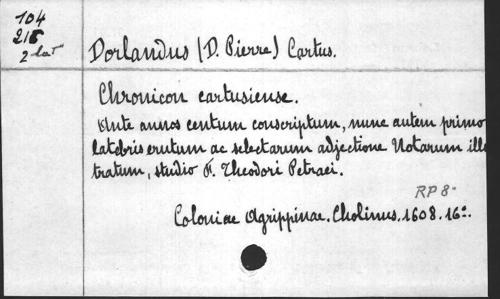 104
216
2 lat
Dorlandus (D. Pierre) Cartus.
Chronicon cartusiense.
Ante annos centum conscriptum, nunc autem primo
latebris erutum ac selectarum adjectione Notarum illu
tratum, studio F. Theodori Petraei.
RP 8-
Coloniae Agrippinae. Cholinus. 1608. 16º.